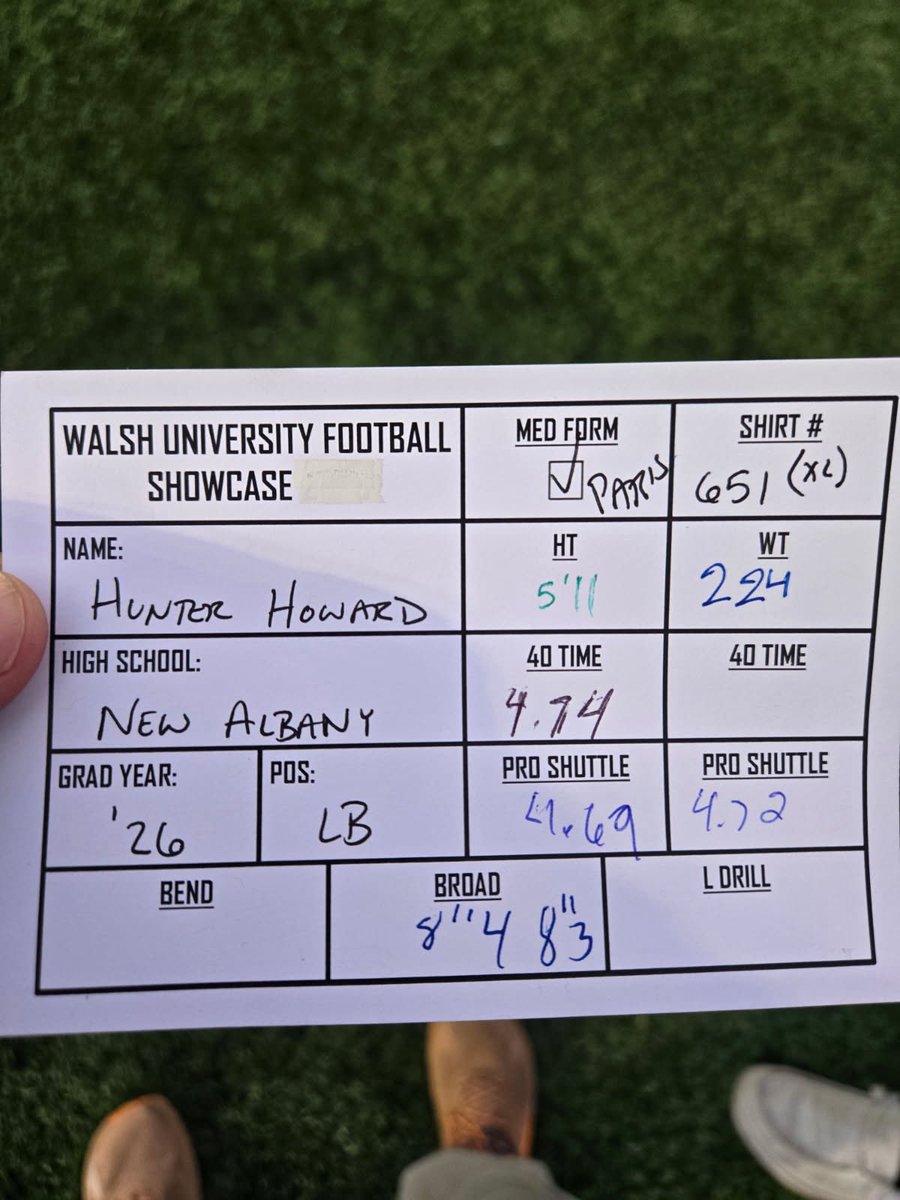 WALSH UNIVERSITY FOOTBALL
SHOWCASE
MED FORM
SHIRT #
651 (XL)
NAME:
HUNTER HOWARD
HT
5'11
WT
224
HIGH SCHOOL:
NEW ALBANY
40 TIME
4.74
40 TIME
GRAD YEAR:
'26
POS:
LB
PRO SHUTTLE
4.69
PRO SHUTTLE
4.72
BEND
BROAD
8"4 8"3
L DRILL